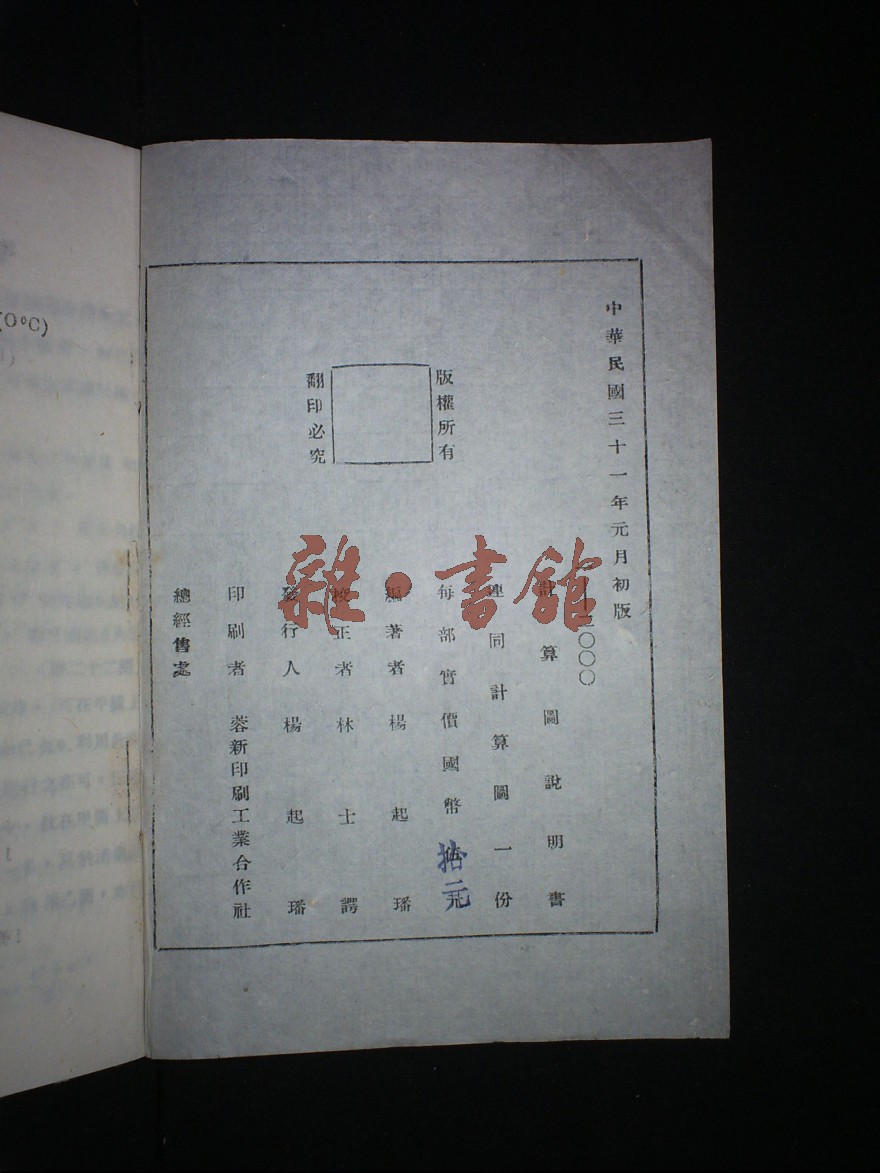 中華民國三十一年元月初版
○○○
計算圖說明書
連同計算圖一份
每部實價國幣
拾元
編著者 楊起璠
校正者 林士諤
發行人 楊起璠
印刷者 蓉新印刷工業合作社
總經售處
版權所有
翻印必究
雜·書館
(0°C)